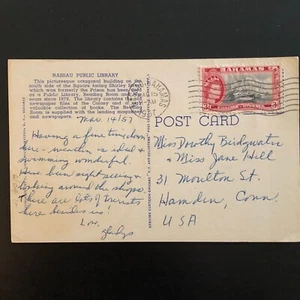 NASSAU PUBLIC LIBRARY
This picturesque octagonal building on the
south side of the Square facing Shirley Street
which was formerly the Prison has been used
as a Public Library, Reading Room and Mu-
seum since 1879. The library contains
newspaper files of the Colony and a very
valuable collection of books. The Reading
Room is supplied with the leading
and newspapers.
Mar 14/57
Having a fine time down
here – weather is ideal &
swimming wonderful.
Have been sightseeing &
looking around the shops.
There are lots of tourists
here besides us!
Love,
Gladys
BAHAMAS
BAHAMAS
POST CARD
Miss Dorothy Bridgwater
& Miss Jane Hill
31 Moulton St.
Hamden, Conn.
USA